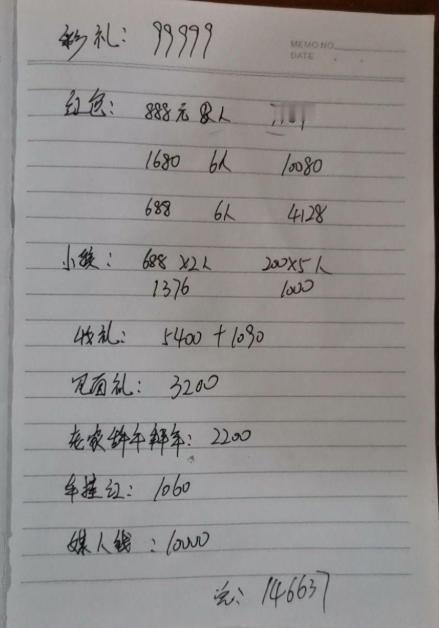 彩礼: 99999
MEMO NO.
DATE
红包: 888元 人
1680 6人 10080
688 6人 4128
小孩: 688×2人 200×5人
1376 1000
收礼: 5400+1090
见面礼: 3200
老家拜年: 2200
车挂红: 1060
媒人钱: 10000
总: 146637